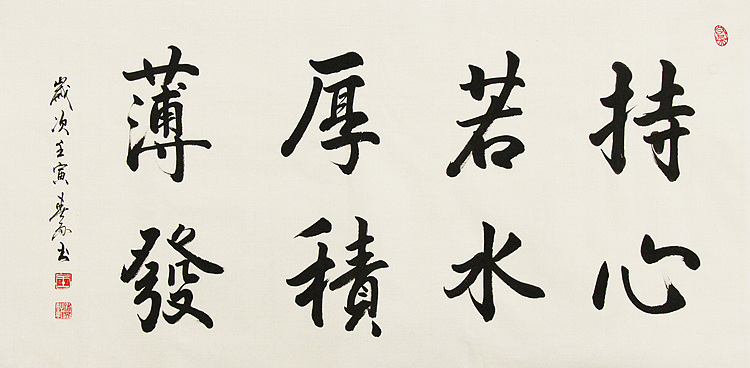 持心
若水
厚積
薄發
歲次壬寅春